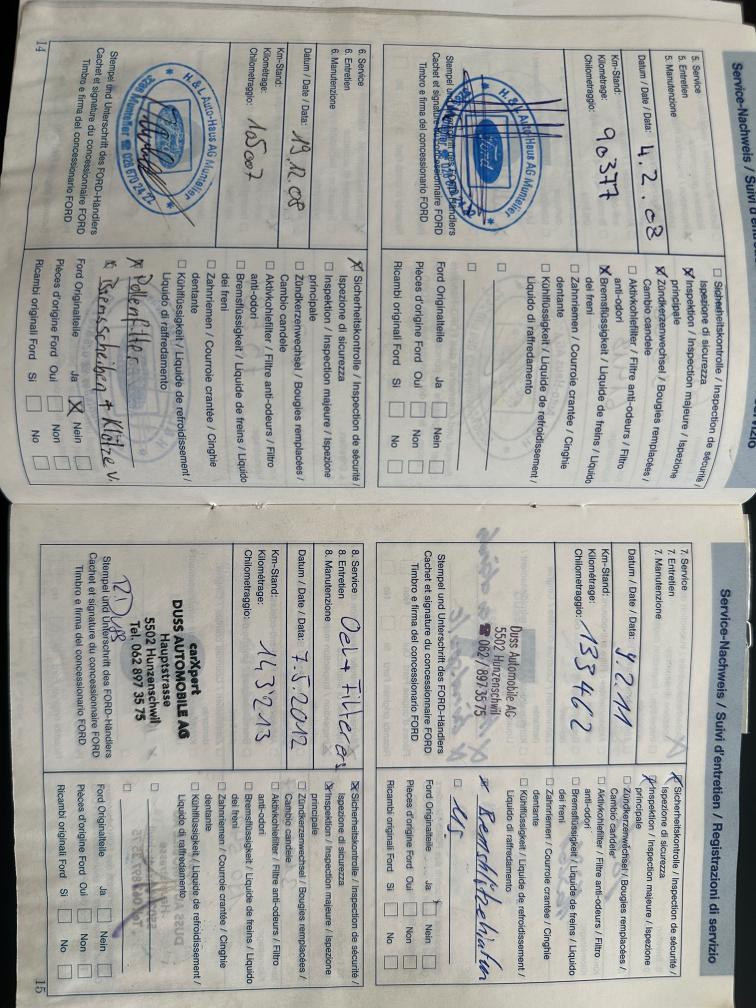 Service-Nachweis / Suivi d'
5. Service
5. Entretien
5. Manutenzione
Datum / Date / Data: 4.2.08
Km-Stand:
Kilométrage: 90377
Chilometraggio:
H. & L. Auto-Haus AG Muntelier
Ford
Stempel und Unterschrift des FORD-Händlers
Cachet et signature du concessionnaire FORD
Timbro e firma del concessionario FORD
☐ Sicherheitskontrolle / Inspection de sécurité /
Ispezione di sicurezza
☒ Inspektion / Inspection majeure / Ispezione
principale
☒ Zündkerzenwechsel / Bougies remplacées /
Cambio candele
☐ Aktivkohlefilter / Filtre anti-odeurs / Filtro
anti-odori
☒ Bremsflüssigkeit / Liquide de freins / Liquido
dei freni
☐ Zahnriemen / Courroie crantée / Cinghie
dentante
☐ Kühlflüssigkeit / Liquide de refroidissement /
Liquido di raffredamento
☐
☐
Ford Originalteile Ja ☐ Nein ☐
Pièces d'origine Ford Oui ☐ Non ☐
Ricambi originali Ford Si ☐ No ☐
6. Service
6. Entretien
6. Manutenzione
Datum / Date / Data: 19.12.08
Km-Stand:
Kilométrage: 105007
Chilometraggio:
H. & L. Auto-Haus AG
3286 Muntelier ☎ 026 670 24 22
Stempel und Unterschrift des FORD-Händlers
Cachet et signature du concessionnaire FORD
Timbro e firma del concessionario FORD
☒ Sicherheitskontrolle / Inspection de sécurité /
Ispezione di sicurezza
☐ Inspektion / Inspection majeure / Ispezione
principale
☐ Zündkerzenwechsel / Bougies remplacées /
Cambio candele
☐ Aktivkohlefilter / Filtre anti-odeurs / Filtro
anti-odori
☐ Bremsflüssigkeit / Liquide de freins / Liquido
dei freni
☐ Zahnriemen / Courroie crantée / Cinghie
dentante
☐ Kühlflüssigkeit / Liquide de refroidissement /
Liquido di raffredamento
☒ Pollenfilter
☒ Bremsscheiben + Klötze v.
Ford Originalteile Ja ☒ Nein ☐
Pièces d'origine Ford Oui ☐ Non ☐
Ricambi originali Ford Si ☐ No ☐
14
Service-Nachweis / Suivi d'entretien / Registrazioni di servizio
7. Service
7. Entretien
7. Manutenzione
Datum / Date / Data: 9.2.11
Km-Stand:
Kilométrage: 133462
Chilometraggio:
Duss Automobile AG
5502 Hunzenschwil
☎ 062 / 897 35 75
Stempel und Unterschrift des FORD-Händlers
Cachet et signature du concessionnaire FORD
Timbro e firma del concessionario FORD
☒ Sicherheitskontrolle / Inspection de sécurité /
Ispezione di sicurezza
☒ Inspektion / Inspection majeure / Ispezione
principale
☐ Zündkerzenwechsel / Bougies remplacées /
Cambio candele
☐ Aktivkohlefilter / Filtre anti-odeurs / Filtro
anti-odori
☐ Bremsflüssigkeit / Liquide de freins / Liquido
dei freni
☐ Zahnriemen / Courroie crantée / Cinghie
dentante
☐ Kühlflüssigkeit / Liquide de refroidissement /
Liquido di raffredamento
☐
Ford Originalteile Ja ☐ Nein ☐
Pièces d'origine Ford Oui ☐ Non ☐
Ricambi originali Ford Si ☐ No ☐
8. Service Oel + Filter
8. Entretien
8. Manutenzione
Datum / Date / Data: 7.5.2012
Km-Stand:
Kilométrage: 143'213
Chilometraggio:
carXpert
DUSS AUTOMOBILE AG
Hauptstrasse
5502 Hunzenschwil
Tel. 062 897 35 75
Stempel und Unterschrift des FORD-Händlers
Cachet et signature du concessionnaire FORD
Timbro e firma del concessionario FORD
☒ Sicherheitskontrolle / Inspection de sécurité /
Ispezione di sicurezza
☒ Inspektion / Inspection majeure / Ispezione
principale
☐ Zündkerzenwechsel / Bougies remplacées /
Cambio candele
☐ Aktivkohlefilter / Filtre anti-odeurs / Filtro
anti-odori
☐ Bremsflüssigkeit / Liquide de freins / Liquido
dei freni
☐ Zahnriemen / Courroie crantée / Cinghie
dentante
☐ Kühlflüssigkeit / Liquide de refroidissement /
Liquido di raffredamento
☐
☐
Ford Originalteile Ja ☐ Nein ☐
Pièces d'origine Ford Oui ☐ Non ☐
Ricambi originali Ford Si ☐ No ☐
15